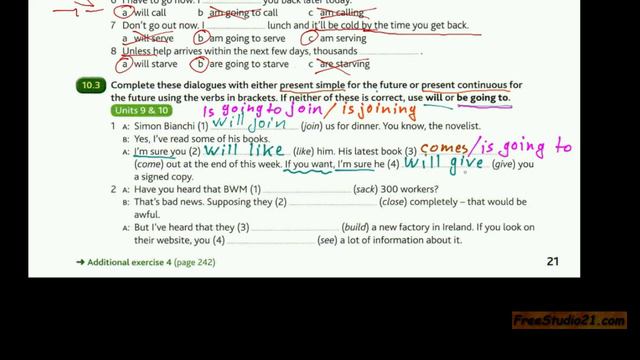 6 I have to go now. I you back later today.
a will call b am going to call c am calling
7 Don't go out now. I lunch and it'll be cold by the time you get back.
a will serve b am going to serve c am serving
8 Unless help arrives within the next few days, thousands .
a will starve b are going to starve c are starving
10.3 Complete these dialogues with either present simple for the future or present continuous for
the future using the verbs in brackets. If neither of these is correct, use will or be going to.
Units 9 & 10
is going to join / is joining
1 A: Simon Bianchi (1) will join (join) us for dinner. You know, the novelist.
B: Yes, I've read some of his books.
A: I'm sure you (2) will like (like) him. His latest book (3) comes /is going to
(come) out at the end of this week. If you want, I'm sure he (4) will give (give) you
a signed copy.
2 A: Have you heard that BWM (1) (sack) 300 workers?
B: That's bad news. Supposing they (2) (close) completely – that would be
awful.
A: But I've heard that they (3) (build) a new factory in Ireland. If you look on
their website, you (4) (see) a lot of information about it.
➔ Additional exercise 4 (page 242)
21
FreeStudio21.com